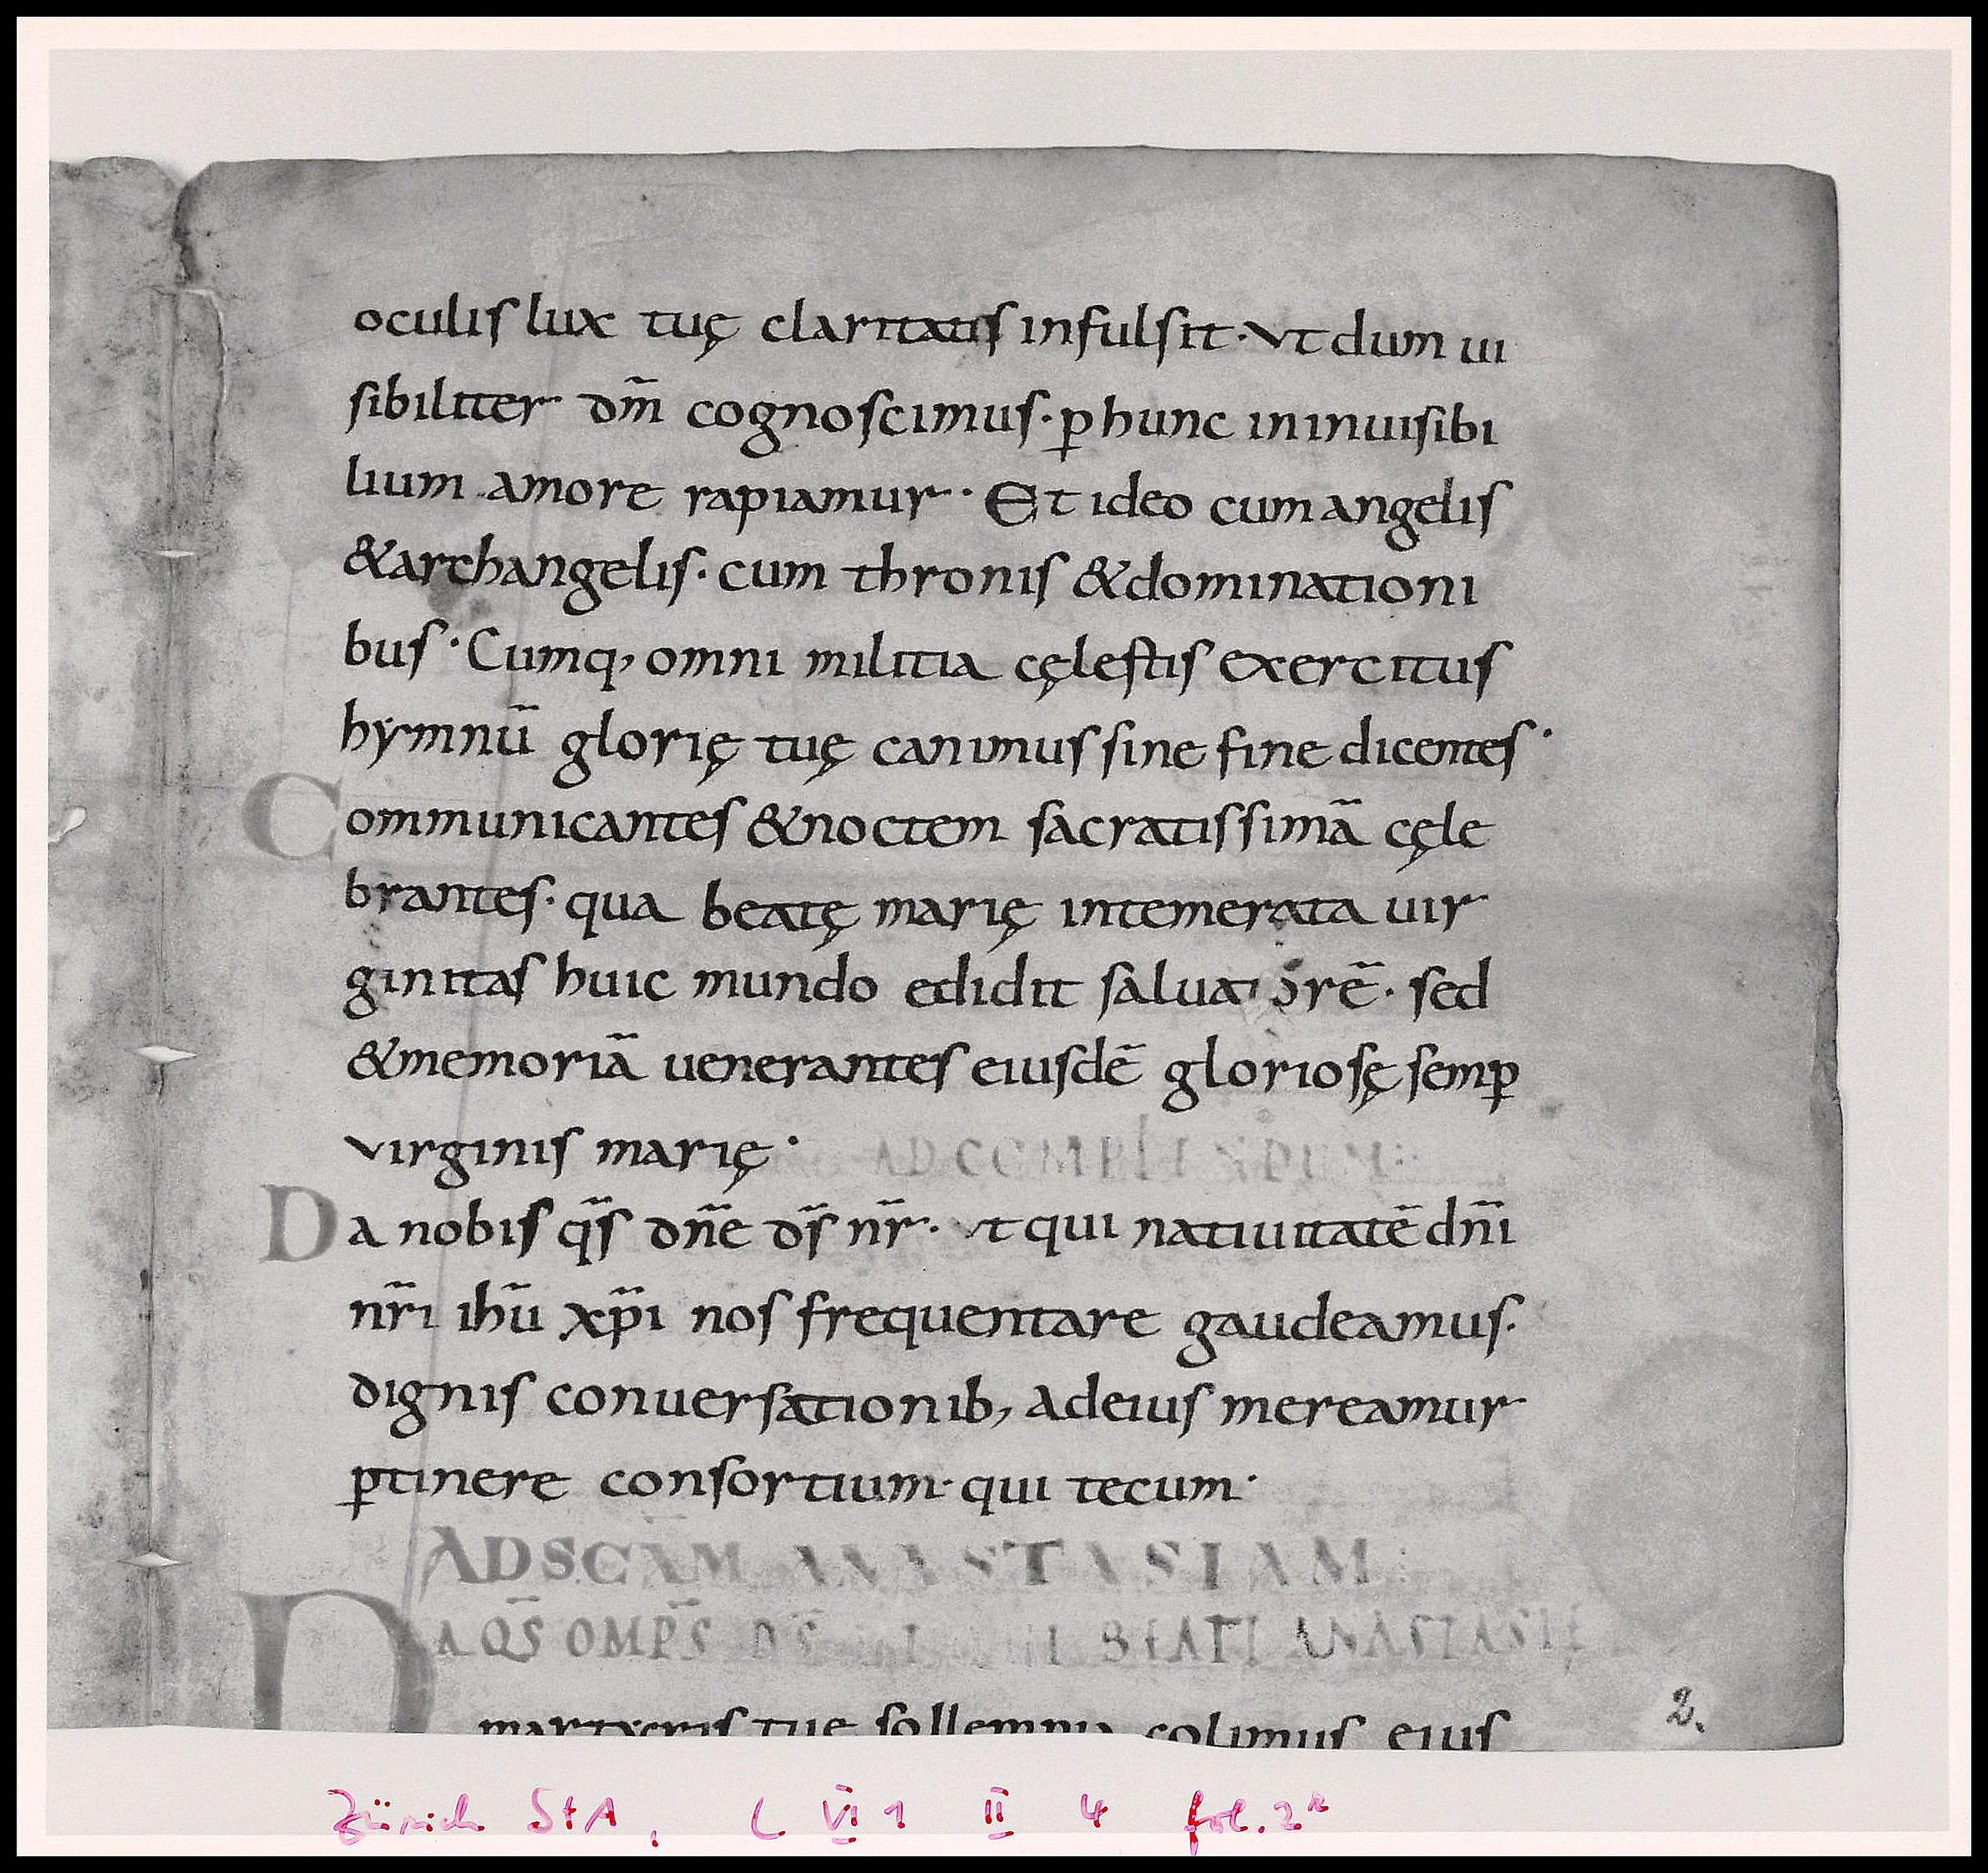 oculis lux tuę claritatis infulsit · Vt dum ui
sibiliter dm̄ cognoscimus · ꝑ hunc in inuisibi
lium amore rapiamur · Et ideo cum angelis
& archangelis · cum thronis & dominationi
bus · Cumq, omni militia cęlestis exercitus
hymnū glorię tuę canimus sine fine dicentes ·
Communicantes & noctem sacratissimā cęle
brantes · qua beatę marię intemerata uir
ginitas huic mundo edidit saluatorē · sed
& memoriā uenerantes eiusdē gloriosę semꝑ
virginis marię · AD COMPLENDUM:
Da nobis qs̄ dn̄e ds̄ nr̄ · vt qui natiuitatē dn̄i
nr̄i ihū xp̄i nos frequentare gaudeamus ·
dignis conuersationib, ad eius mereamur
ꝑtinere consortium · qui tecum ·
AD SCĀM ANASTASIAM:
DA QS̄ OMP̄S DS̄ BEATĘ ANASTASIĘ
martyris tuę sollemnia colimus eius
2.
Zürich StA, C VI 1 II 4 fol. 2r